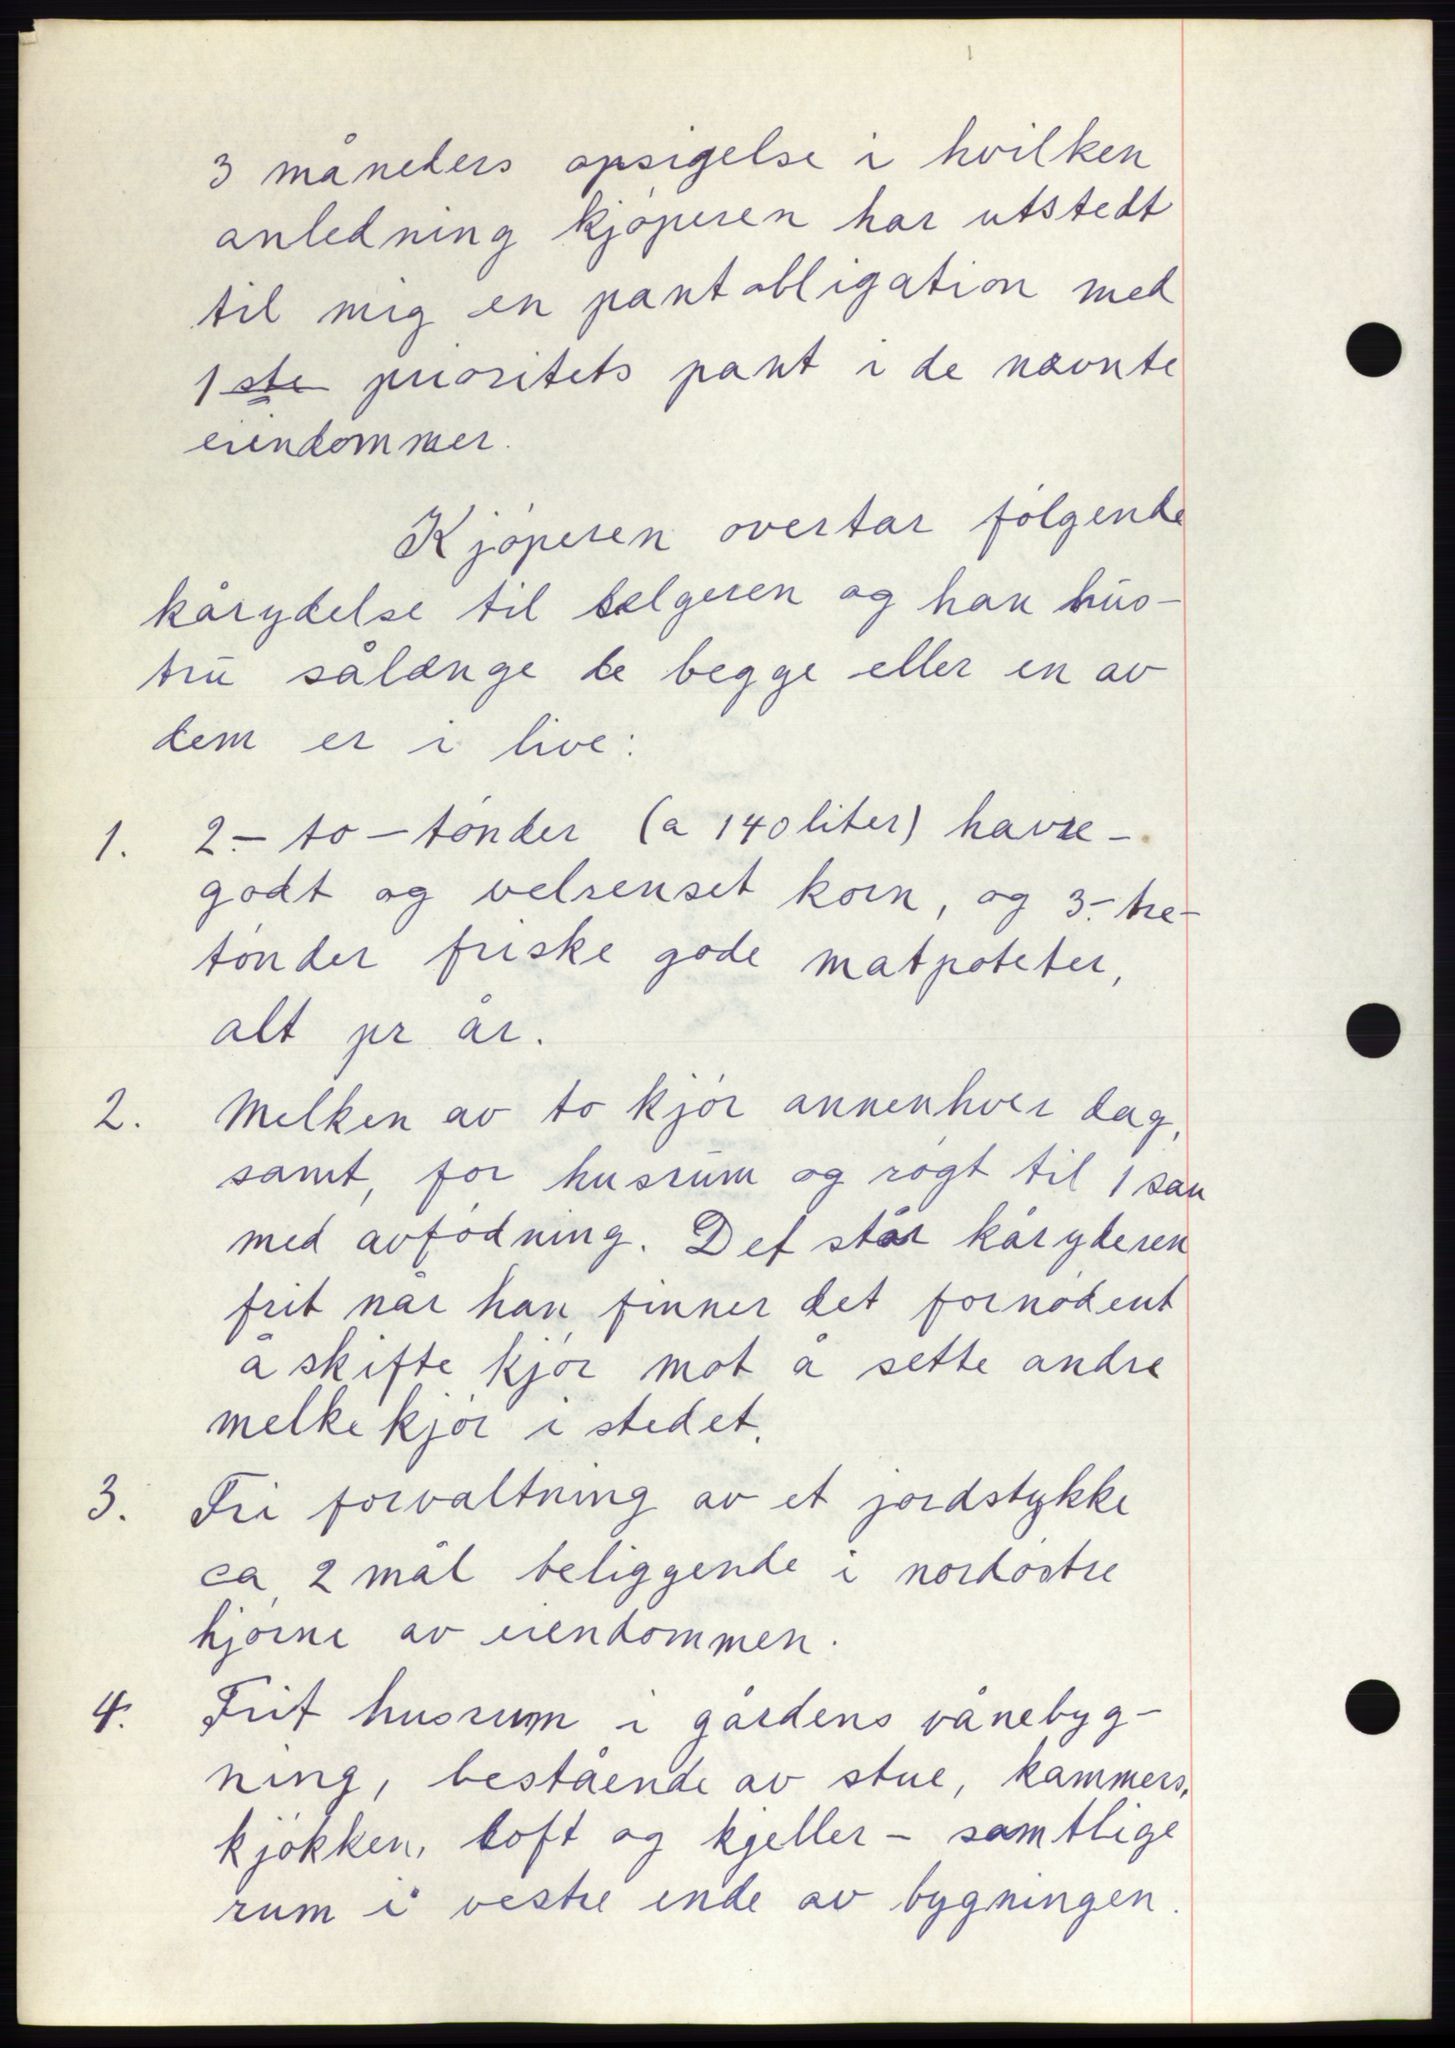 3 måneders opsigelse i hvilken
anledning kjøperen har utstedt
til mig en pantobligation med
1ste prioritets pant i de nævnte
eiendommer.
Kjøperen overtar følgende
kårydelse til selgeren og han hus-
tru sålænge de begge eller en av
dem er i live:
1. 2.- to - tønder (a 140 liter) havre -
godt og velrenset korn, og 3.- tre -
tønder friske gode matpoteter,
alt pr år.
2. Melken av to kjør annenhver dag,
samt, for husrum og røgt til 1 sau
med avfødning. Det står kåryderen
frit når han finner det fornødent
å skifte kjør mot å sette andre
melkekjør i stedet.
3. Fri forvaltning av et jordstykke
ca 2 mål beliggende i nordøstre
hjørne av eiendommen.
4. Frit husrum i gårdens vånebyg-
ning, bestående av stue, kammers,
kjøkken, loft og kjeller - samtlige
rum i vestre ende av bygningen.